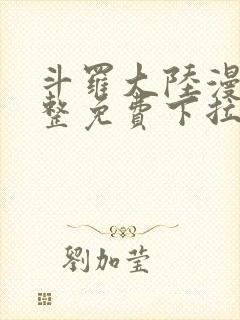 斗羅大陸漫
整免費下拉
劉加莹